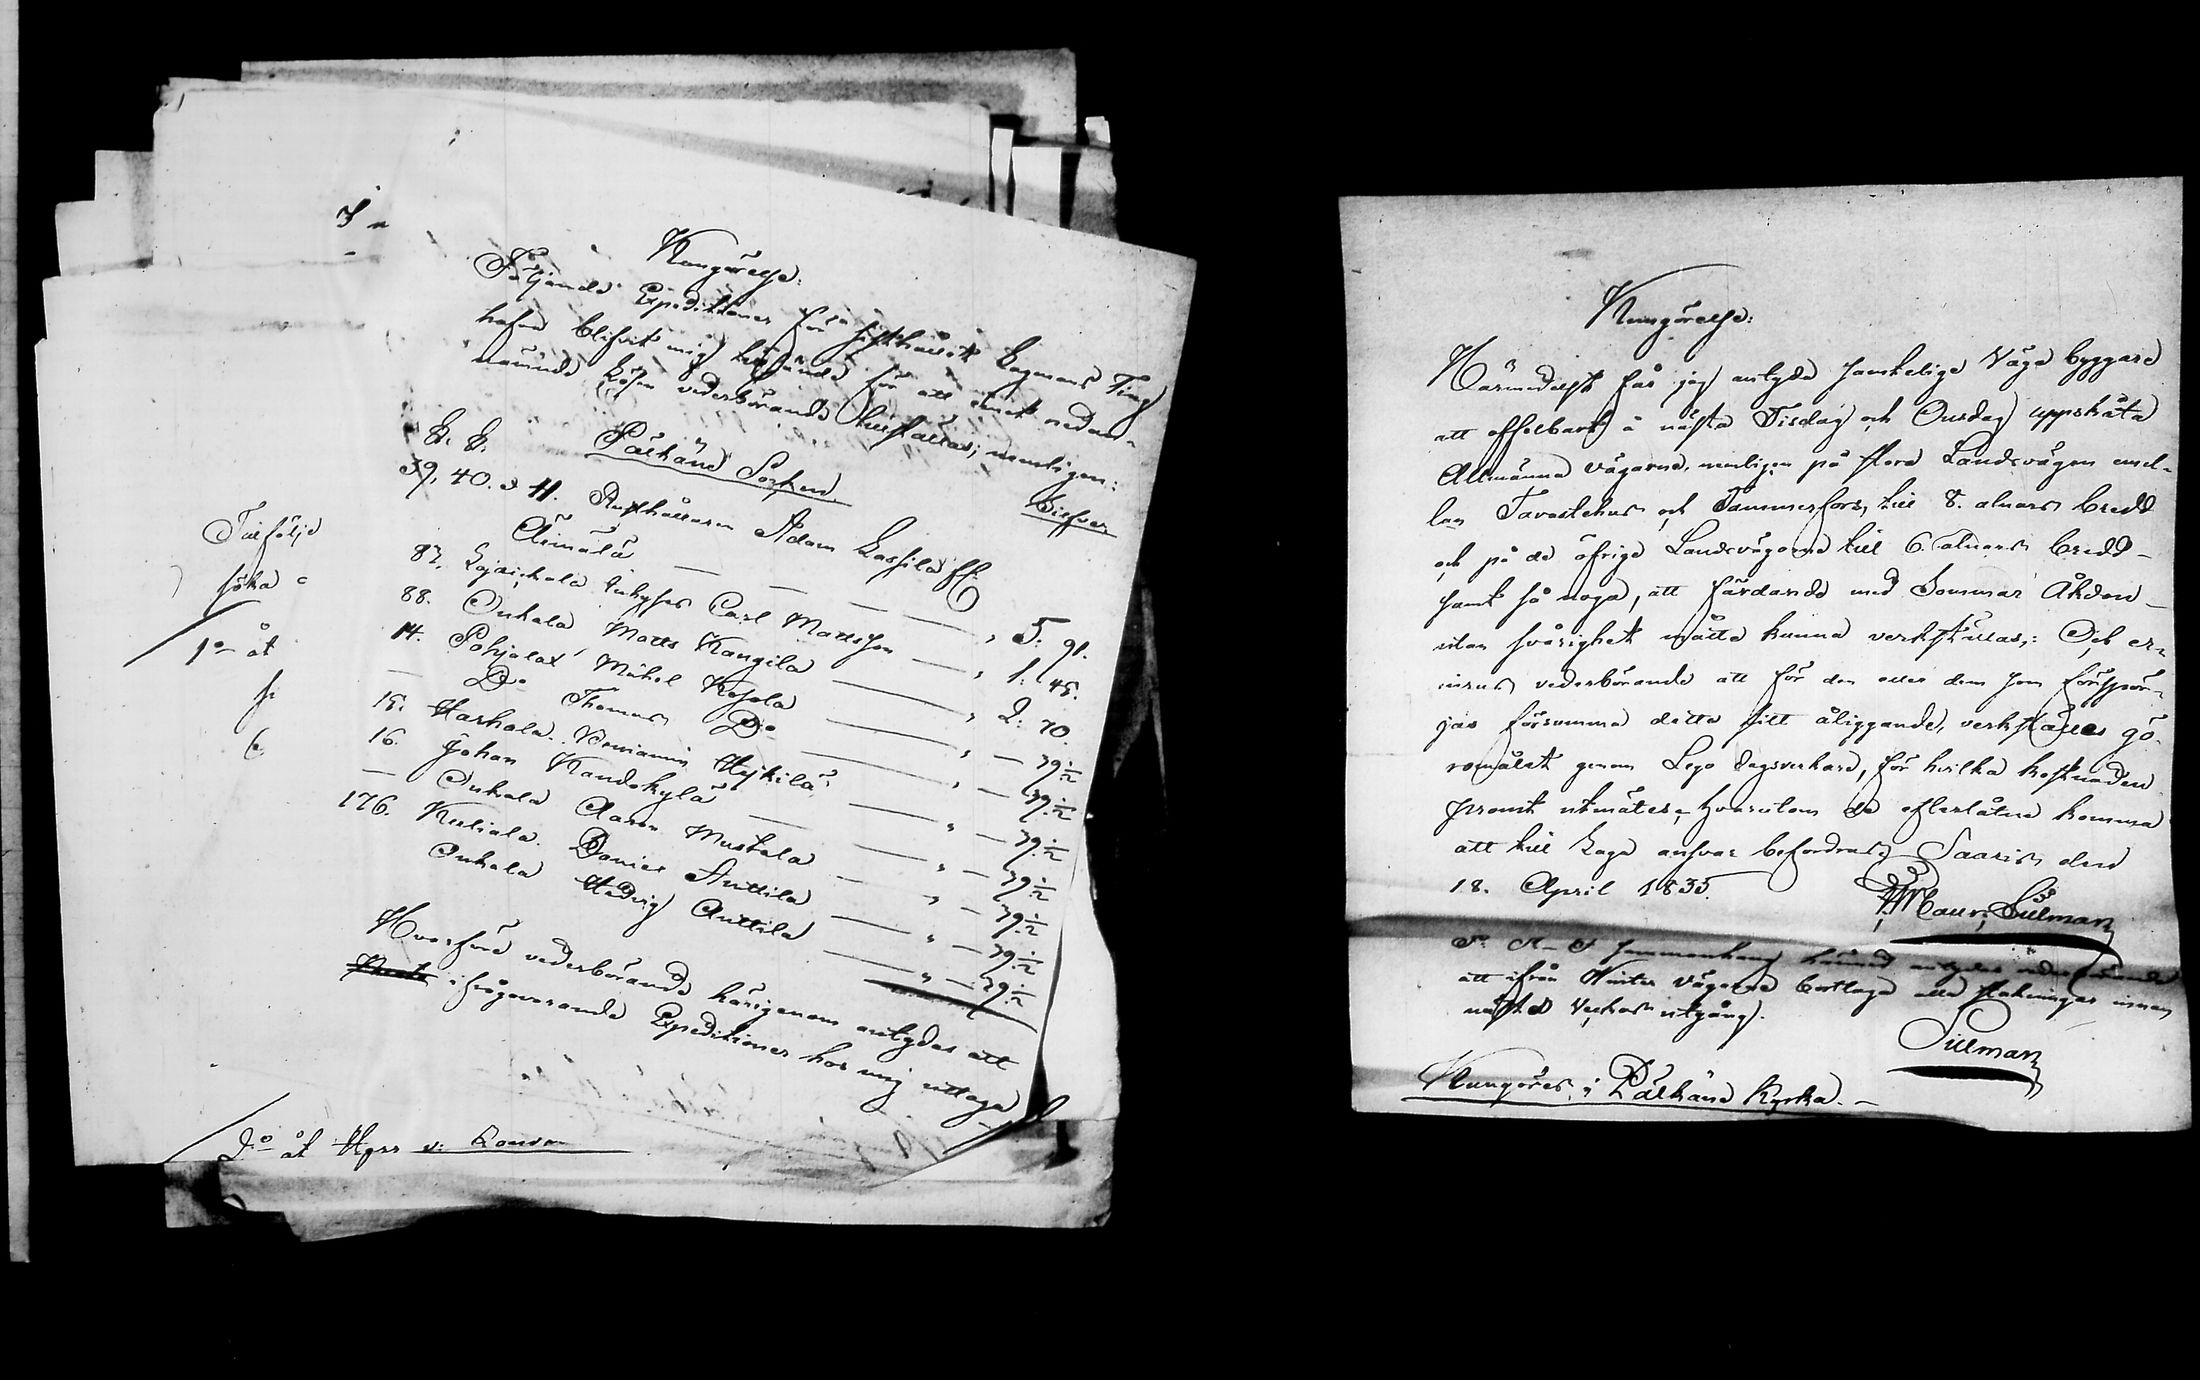 Kungörelse.
Följande Expeditioner från sisthållit Lagmans Ting
hafva blifvit mig tillsände för att emot nedan-
nämnde Lösen vederbörande tillställas; nemligen:
Pälkäne Socken
39, 40. o 41. Rusthållaren Adam Lassila ff:
Äimälä — — — " 5: 91.
87. Lajaickala Inhyses Carl Mattsson — " 1: 45.
88. Onkala Matts Kangila — " 2: 70.
14. Pohjalax Mickel Kesola — " — 79 1/2
— Do Thomas Do — " — 79 1/2
15. Harhala Benjamin Heikkilä — " — 79 1/2
16. Johan Kandokylä — " — 79 1/2
— Onkala Aaron Mustala — " — 79 1/2
176. Kuliala. Daniel Anttila — " — 79 1/2
Onkala Hedvig Anttila — " — 79 1/2
Hvarföre vederbörande härigenom antydes att
ifrågavarande Expeditioner hos mig uttaga
Tillfölje
söka
1o åt
Do åt Herr v:
Kungörelse:
Härmedelst får jag antyda samtelige Väga byggare
att offelbart å nästa Tisdag och Onsdag uppskåta
Allmänna vägarne, nemligen på stora Landsvägen emel-
lan Tavastehus och Tammerfors, till 8. alnars bredd
och på de öfrige Landsvägarne till 6. alnars bredd —
samt så noga, att färdande med Sommar Åkdon —
utan svårighet måtte kunna verkställas,: Och er-
inras vederbörande att för den eller dem som förspör-
jas försumma detta sitt åliggande, verkställes gö-
romålet genom Lego dagsverkare, för hvilka kostnaden
promt utmätes, hvarutom de efterlåtne komma
att till Laga ansvar befordras. Saaris den
18. April 1835.
Maur: Sillman
sammanhang härmed antydes vederbörande
att ifrån Winter vägarne borttaga alla stakningar innan
nästa Veckas utgång.
Sillman
Kungöres i Pälkäne Kyrka. —